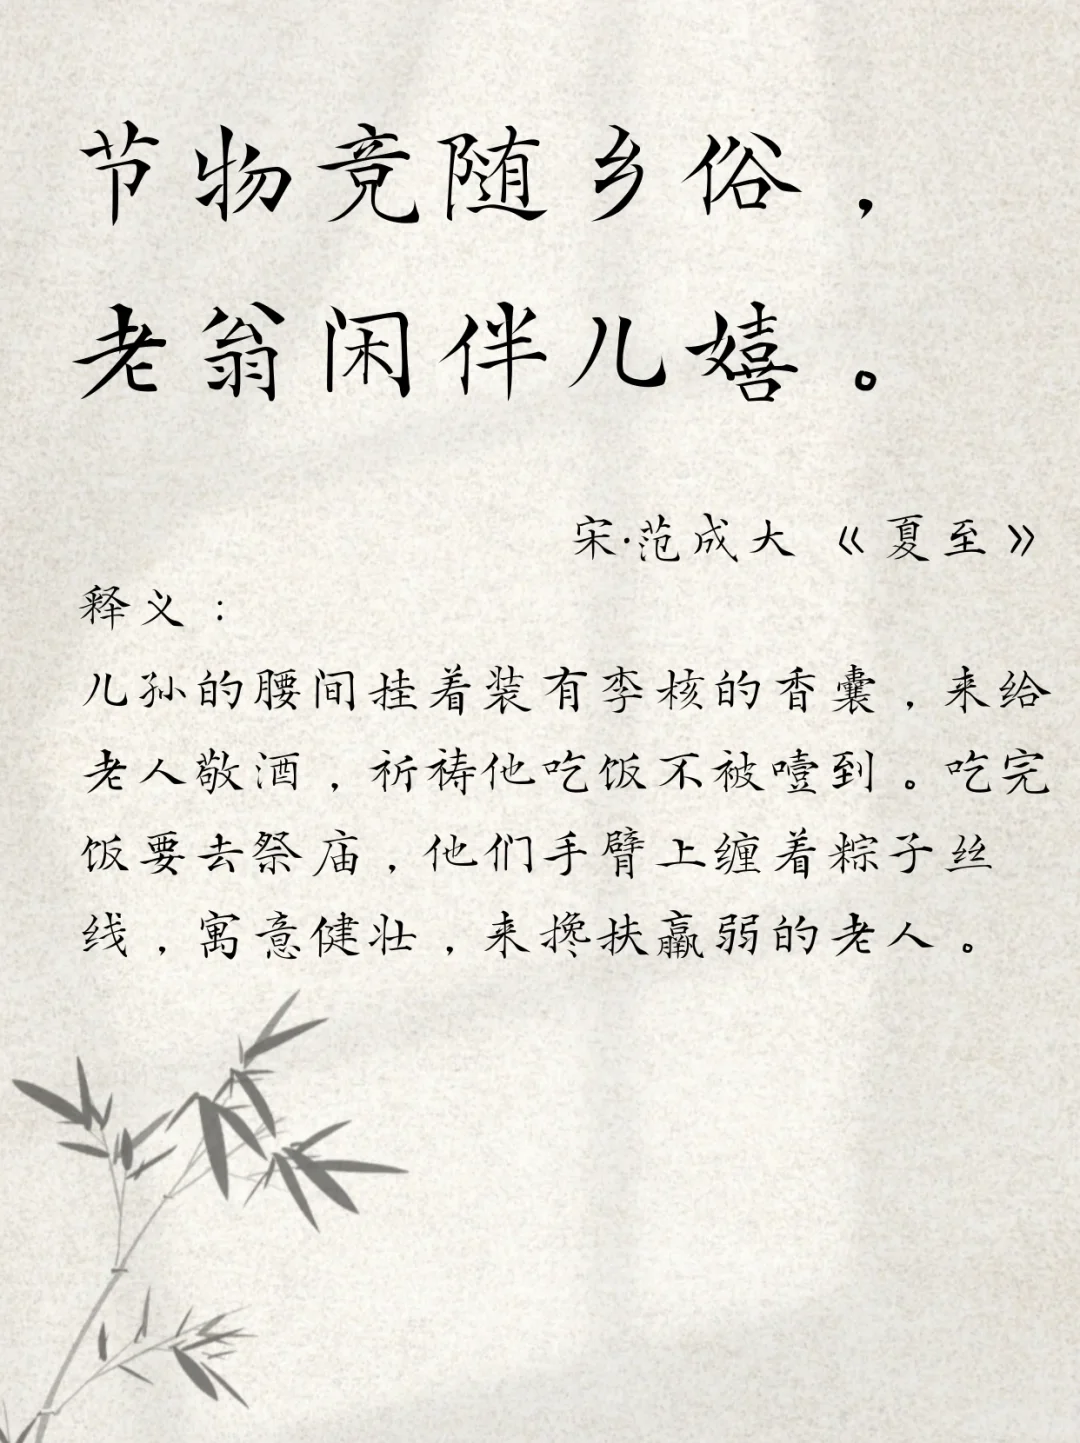 节物竞随乡俗，
老翁闲伴儿嬉。
宋·范成大《夏至》
释义：
儿孙的腰间挂着装有李核的香囊，来给
老人敬酒，祈祷他吃饭不被噎到。吃完
饭要去祭庙，他们手臂上缠着粽子丝
线，寓意健壮，来搀扶羸弱的老人。